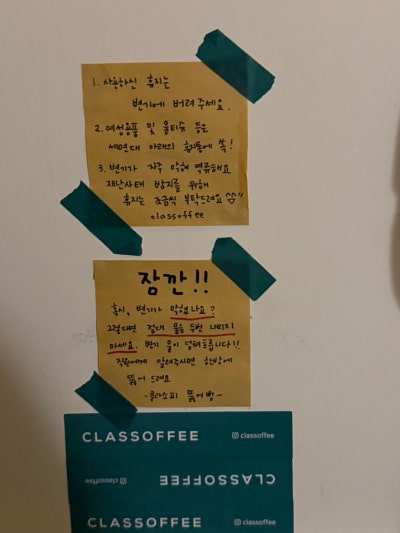 1. 사용하신 휴지는
변기에 버려주세요.
2. 여성용품 및 물티슈 등은
세면대 아래의 휴지통에 쏙!
3. 변기가 자주 막혀 역류해요
재난사태 방지를 위해
휴지는 조금씩 부탁드려요
classoffee
잠깐!!
혹시, 변기가 막혔나요?
그렇다면 절대 물을 두번 내리지
마세요. 변기 물이 넘쳐흐릅니다!!
직원에게 알려주시면 한방에
뚫어 드려요
-클라소피 뚫어뻥-
CLASSOFFEE
classoffee
classoffee
CLASSOFFEE
CLASSOFFEE
classoffee